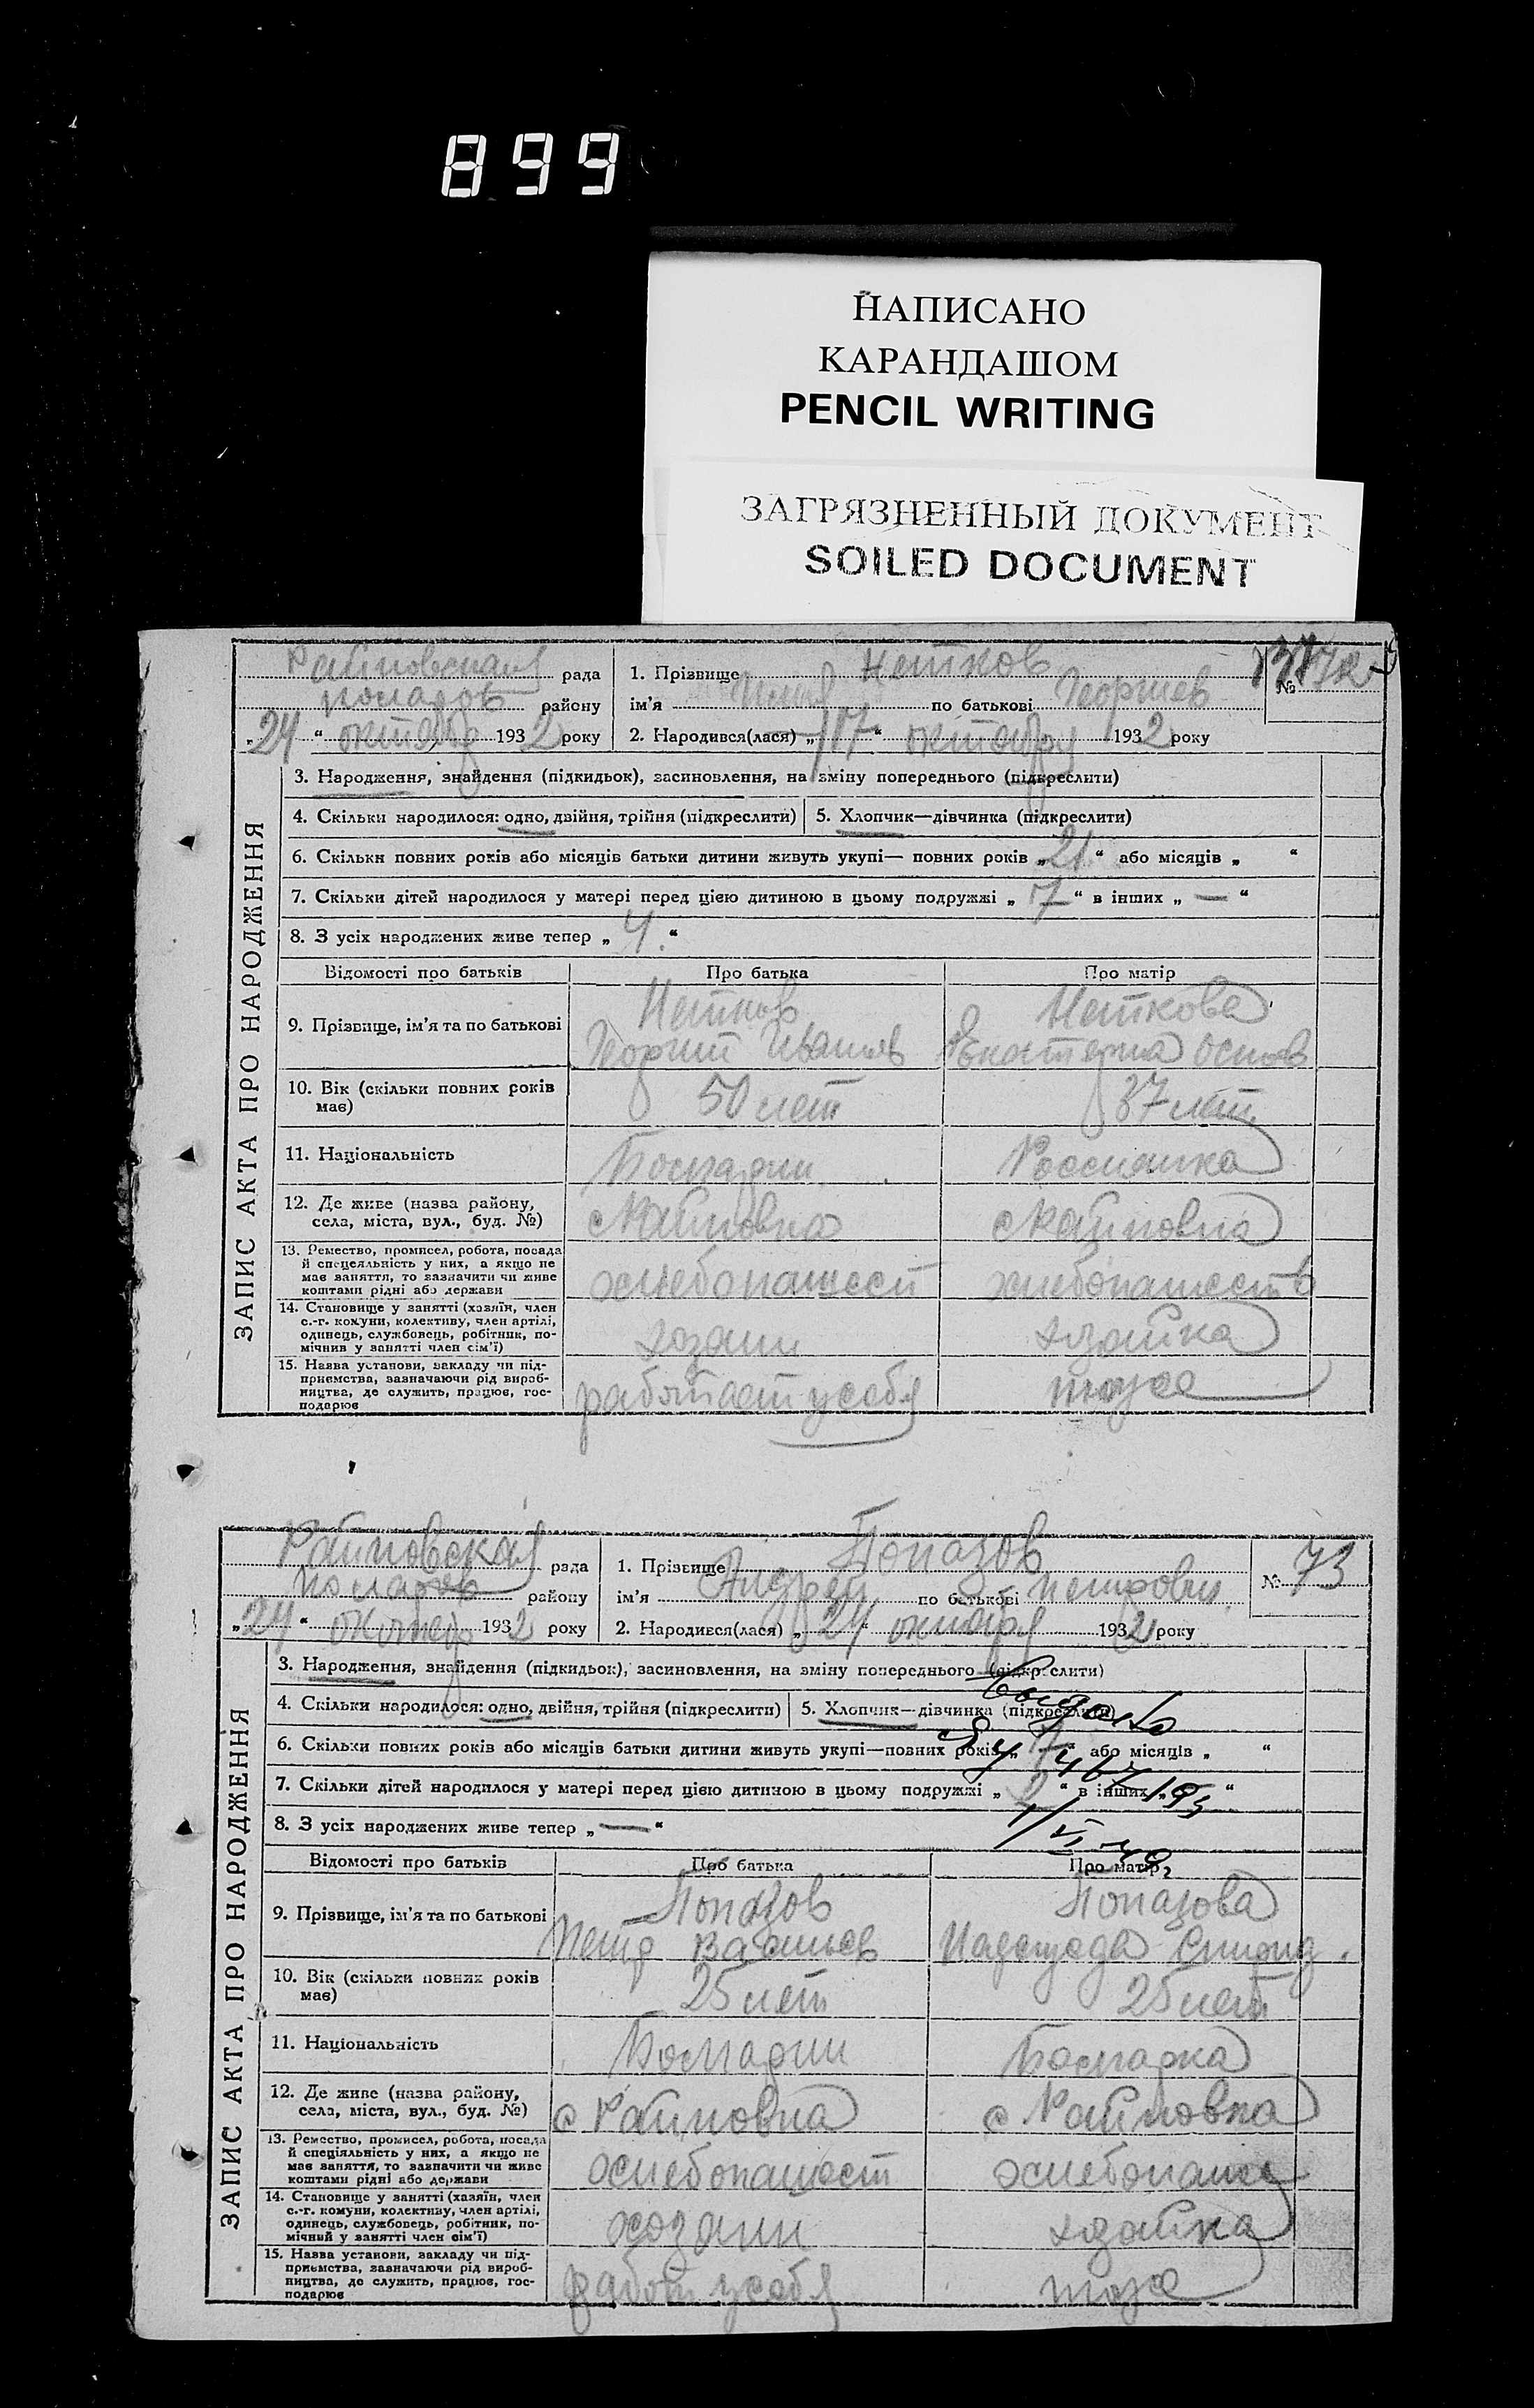 899
НАПИСАНО
КАРАНДАШОМ
PENCIL WRITING
ЗАГРЯЗНЕННЫЙ ДОКУМЕНТ
SOILED DOCUMENT
рада
району
„24“ октября 1932 року
1. Прізвище Нетков
ім'я по батькові Георгиев
2. Народився(лася) „17“ октября 1932 року
№ 72
ЗАПИС АКТА ПРО НАРОДЖЕННЯ
3. Народження, знайдення (підкидьок), засиновлення, на зміну попереднього (підкреслити)
4. Скільки народилося: одно, двійня, трійня (підкреслити)
5. Хлопчик—дівчинка (підкреслити)
6. Скільки повних років або місяців батьки дитини живуть укупі— повних років „21“ або місяців „ “
7. Скільки дітей народилося у матері перед цією дитиною в цьому подружжі „7“ в інших „—“
8. З усіх народжених живе тепер „4.“
Відомості про батьків
Про батька
Про матір
9. Прізвище, ім'я та по батькові
Нетков
Георгий Иванов
Неткова
Екатерина
10. Вік (скільки повних років має)
50 лет
37 лет
11. Національність
Болгарин
12. Де живе (назва району, села, міста, вул., буд. №)
13. Ремество, промисел, робота, посада й спеціяльність у них, а якщо не має заняття, то зазначити чи живе коштами рідні або держави
хлебопашест
хлебопашество
14. Становище у занятті (хазяїн, член с.-г. комуни, колективу, член артілі, одинець, службовець, робітник, помічник у занятті член сім'ї)
хозяин
хозяйка
15. Назва установи, закладу чи підприємства, зазначаючи рід виробництва, де служить, працює, господарює
работает у себя
тоже
рада
району
„24“ октября 1932 року
1. Прізвище Попазов
ім'я Андрей по батькові Петрович
2. Народився(лася) „24“ октября 1932 року
№ 73
ЗАПИС АКТА ПРО НАРОДЖЕННЯ
3. Народження, знайдення (підкидьок), засиновлення, на зміну попереднього (підкреслити)
4. Скільки народилося: одно, двійня, трійня (підкреслити)
5. Хлопчик—дівчинка (підкреслити)
6. Скільки повних років або місяців батьки дитини живуть укупі—повних років „7“ або місяців „ “
7. Скільки дітей народилося у матері перед цією дитиною в цьому подружжі „2“ в інших „ “
8. З усіх народжених живе тепер „—“
Відомості про батьків
Про батька
Про матір
9. Прізвище, ім'я та по батькові
Попазов
Петр Васильев
Попазова
Надежда Спирид.
10. Вік (скільки повних років має)
25 лет
25 лет
11. Національність
Болгарин
Болгарка
12. Де живе (назва району, села, міста, вул., буд. №)
13. Ремество, промисел, робота, посада й спеціяльність у них, а якщо не має заняття, то зазначити чи живе коштами рідні або держави
хлебопашест
хлебопаше
14. Становище у занятті (хазяїн, член с.-г. комуни, колективу, член артілі, одинець, службовець, робітник, помічний у занятті член сім'ї)
хозяин
хозяйка
15. Назва установи, закладу чи підприємства, зазначаючи рід виробництва, де служить, працює, господарює
работ у себя
тоже